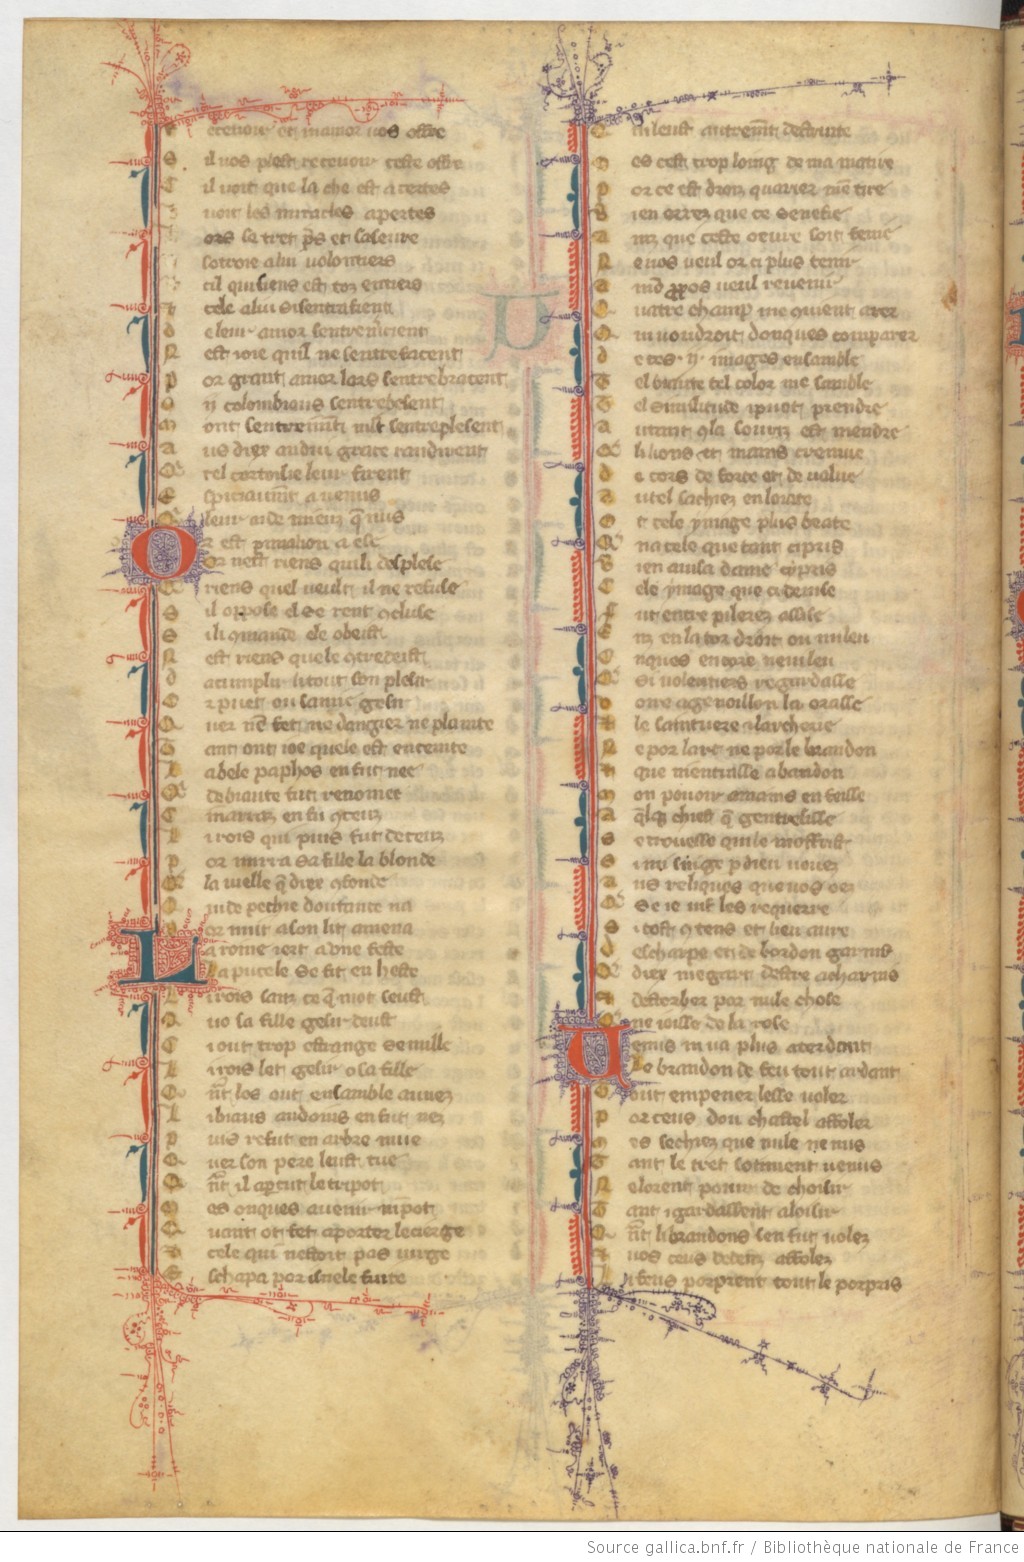 recevoir et mamor vos offre
S il vos plest recevoir ceste offre
C il voit que la che est a certes
voit les miracles apertes
ors se tret p̃s et saseure
sottroie a lui volontiers
cil qui siens est toz entiers
cele a lui sisentrafient
d e leur amor sentremerient
N est ioie quil ne sentrefacent
p or grant amor lors sentrebracent
ꝯ ij colombiaus sentrebesent
m ont sentreaimt mlt sentreplesent
A us diex andui graces randirent
Q̃ tel cortoisie leur firent
E specraumt a venus
Q̃ leur aide mieuz q̃ nus
O r est pimalion a ese
Or nest riens qui li desplese
riens quel veult il ne refuse
S il opose el se rent ꝯcluse
S il ꝯmande ele obeist
N est riens quele ꝯtredeist
d acumplir li tout son plesir
O r puet o sa fame gesir
Q uer nẽ fet ne dangier ne plainte
T ant ont ioe quele est enceinte
D e bele paphos en fut nee
Q̃ de biaute fut renomee
C inarraz en fu ꝯceuz
L i rois qui puis fut deceuz
p or mirra sa fille la blonde
Q̃ la vielle q̃ diex ꝯfonde
Q ui de pechie doutance na
p or nuit a son lit amena
L a roine iert a une feste
La pucele se fit en heste
L i rois sanz ce q̃ mot seust
Q uo sa fille gesir deust
C i out trop estrange semille
L i rois let gesir o sa fille
Q ñt les ot ensamble aunez
L i biaus andonis en fut nez
p uis refut en arbre muee
Q uer son pere leust tuee
Q ñt il apercut le tripot
M es onques avenir ni pot
Q uant ot fet aporter le cierge
Q cele qui nestoit pas vierge
E schapa por isnele fuite
Q ui leust autremt destruite
M es cest trop loing de ma matire
p or ce est droiz quarier mẽ tire
B ien orrez que ce senefie
A inz que ceste oeuvre soit fenie
N e vos veul or ci plus tenir
A mõ propos veul revenir
Q uatre champ me ꝯuient arer
Q ui voudroit donques comparer
d e ces ij ymages ensamble
T el biaute tel color me samble
T el similitude i puet prendre
A utant ꝯ la souriz est mendre
Q̃ li lions et mains cremue
d e cors de force et de value
A utel sachiez en loiaute
O t cele ymage plus beaute
Q̃ na cele que tant ci pris
B ien avisa dame cypris
C ele ymage que ci devise
ſ ut entre pilerez assise
E nz en la tor droit ou mileu
O nques encore ne vi leu
Q̃ si volentiers regardasse
v oire agenoillon la orasse
N e le saintuere et larchiere
N e por larc ne por le brandon
que nientrasse a bandon
m on pooir amains en feisse
A qlq̃ chief q̃ gen treisse
S e trovasse qui le moffrist
S i nu singe p dieu vouez
A us reliques que vos oez
Q̃ se ie puis les requerre
S i tost ꝯ tens et lieu aure
d escharpe et de bordon garnis
Q̃ diex me gart destre acharnis
N e destorber por nule chose
Q̃ ne ioisse de la rose
U enus ni va plus atendant
Le brandon de feu tout ardant
Tout empenez lesse voler
p or ceus dou chastel affoler
M es sachiez que nule ne nus
T ant le tret sotiment venus
N e lorent pooir de choisir
T ant i gardassent a loisir
Q ñt li brandons sen fut volez
E vos ceus dedenz affolez
L i feus porprent tout le porpris